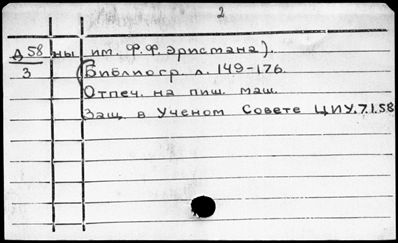 2
Д58 ны им. Ф.Ф. Эрисмана).
3 (Библиогр. л. 149-176.
Отпеч. на пиш. маш.
Защ. в Ученом Совете ЦИУ. 7.1.58